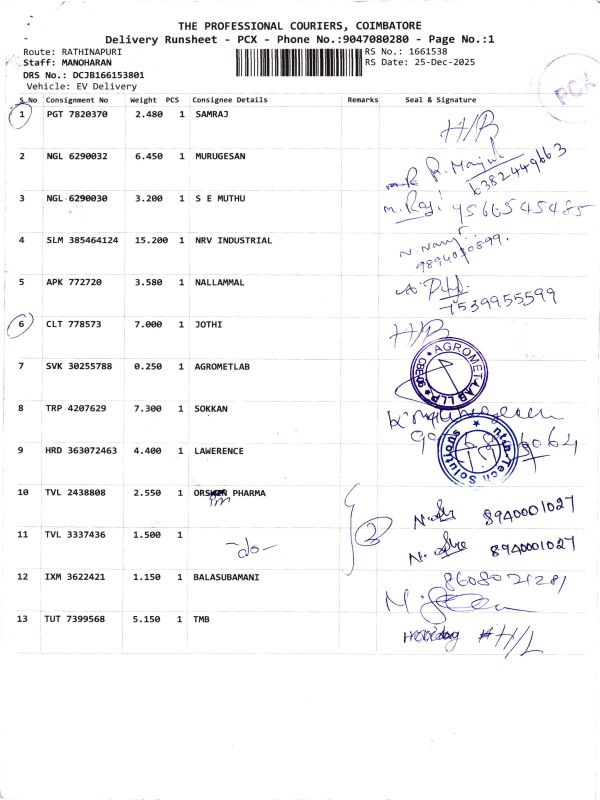 THE PROFESSIONAL COURIERS, COIMBATORE
Delivery Runsheet - PCX - Phone No.:9047080280 - Page No.:1
Route: RATHINAPURI RS No.: 1661538
Staff: MANOHARAN RS Date: 25-Dec-2025
DRS No.: DCJB166153801
Vehicle: EV Delivery
PCX
S No Consignment No Weight PCS Consignee Details Remarks Seal & Signature
1 PGT 7820370 2.480 1 SAMRAJ H/B
2 NGL 6290032 6.450 1 MURUGESAN
6382449663
3 NGL 6290030 3.200 1 S E MUTHU 9566545485
4 SLM 385464124 15.200 1 NRV INDUSTRIAL
9894030899.
5 APK 772720 3.580 1 NALLAMMAL
7539955599
6 CLT 778573 7.000 1 JOTHI H/B
7 SVK 30255788 0.250 1 AGROMETLAB AGROMETLAB LLP
8 TRP 4207629 7.300 1 SOKKAN
9 HRD 363072463 4.400 1 LAWERENCE Tech Solutions
10 TVL 2438808 2.550 1 PHARMA 8940001027
11 TVL 3337436 1.500 1 -do- 2 8940001027
12 IXM 3622421 1.150 1 BALASUBAMANI 8608021281
13 TUT 7399568 5.150 1 TMB H/L